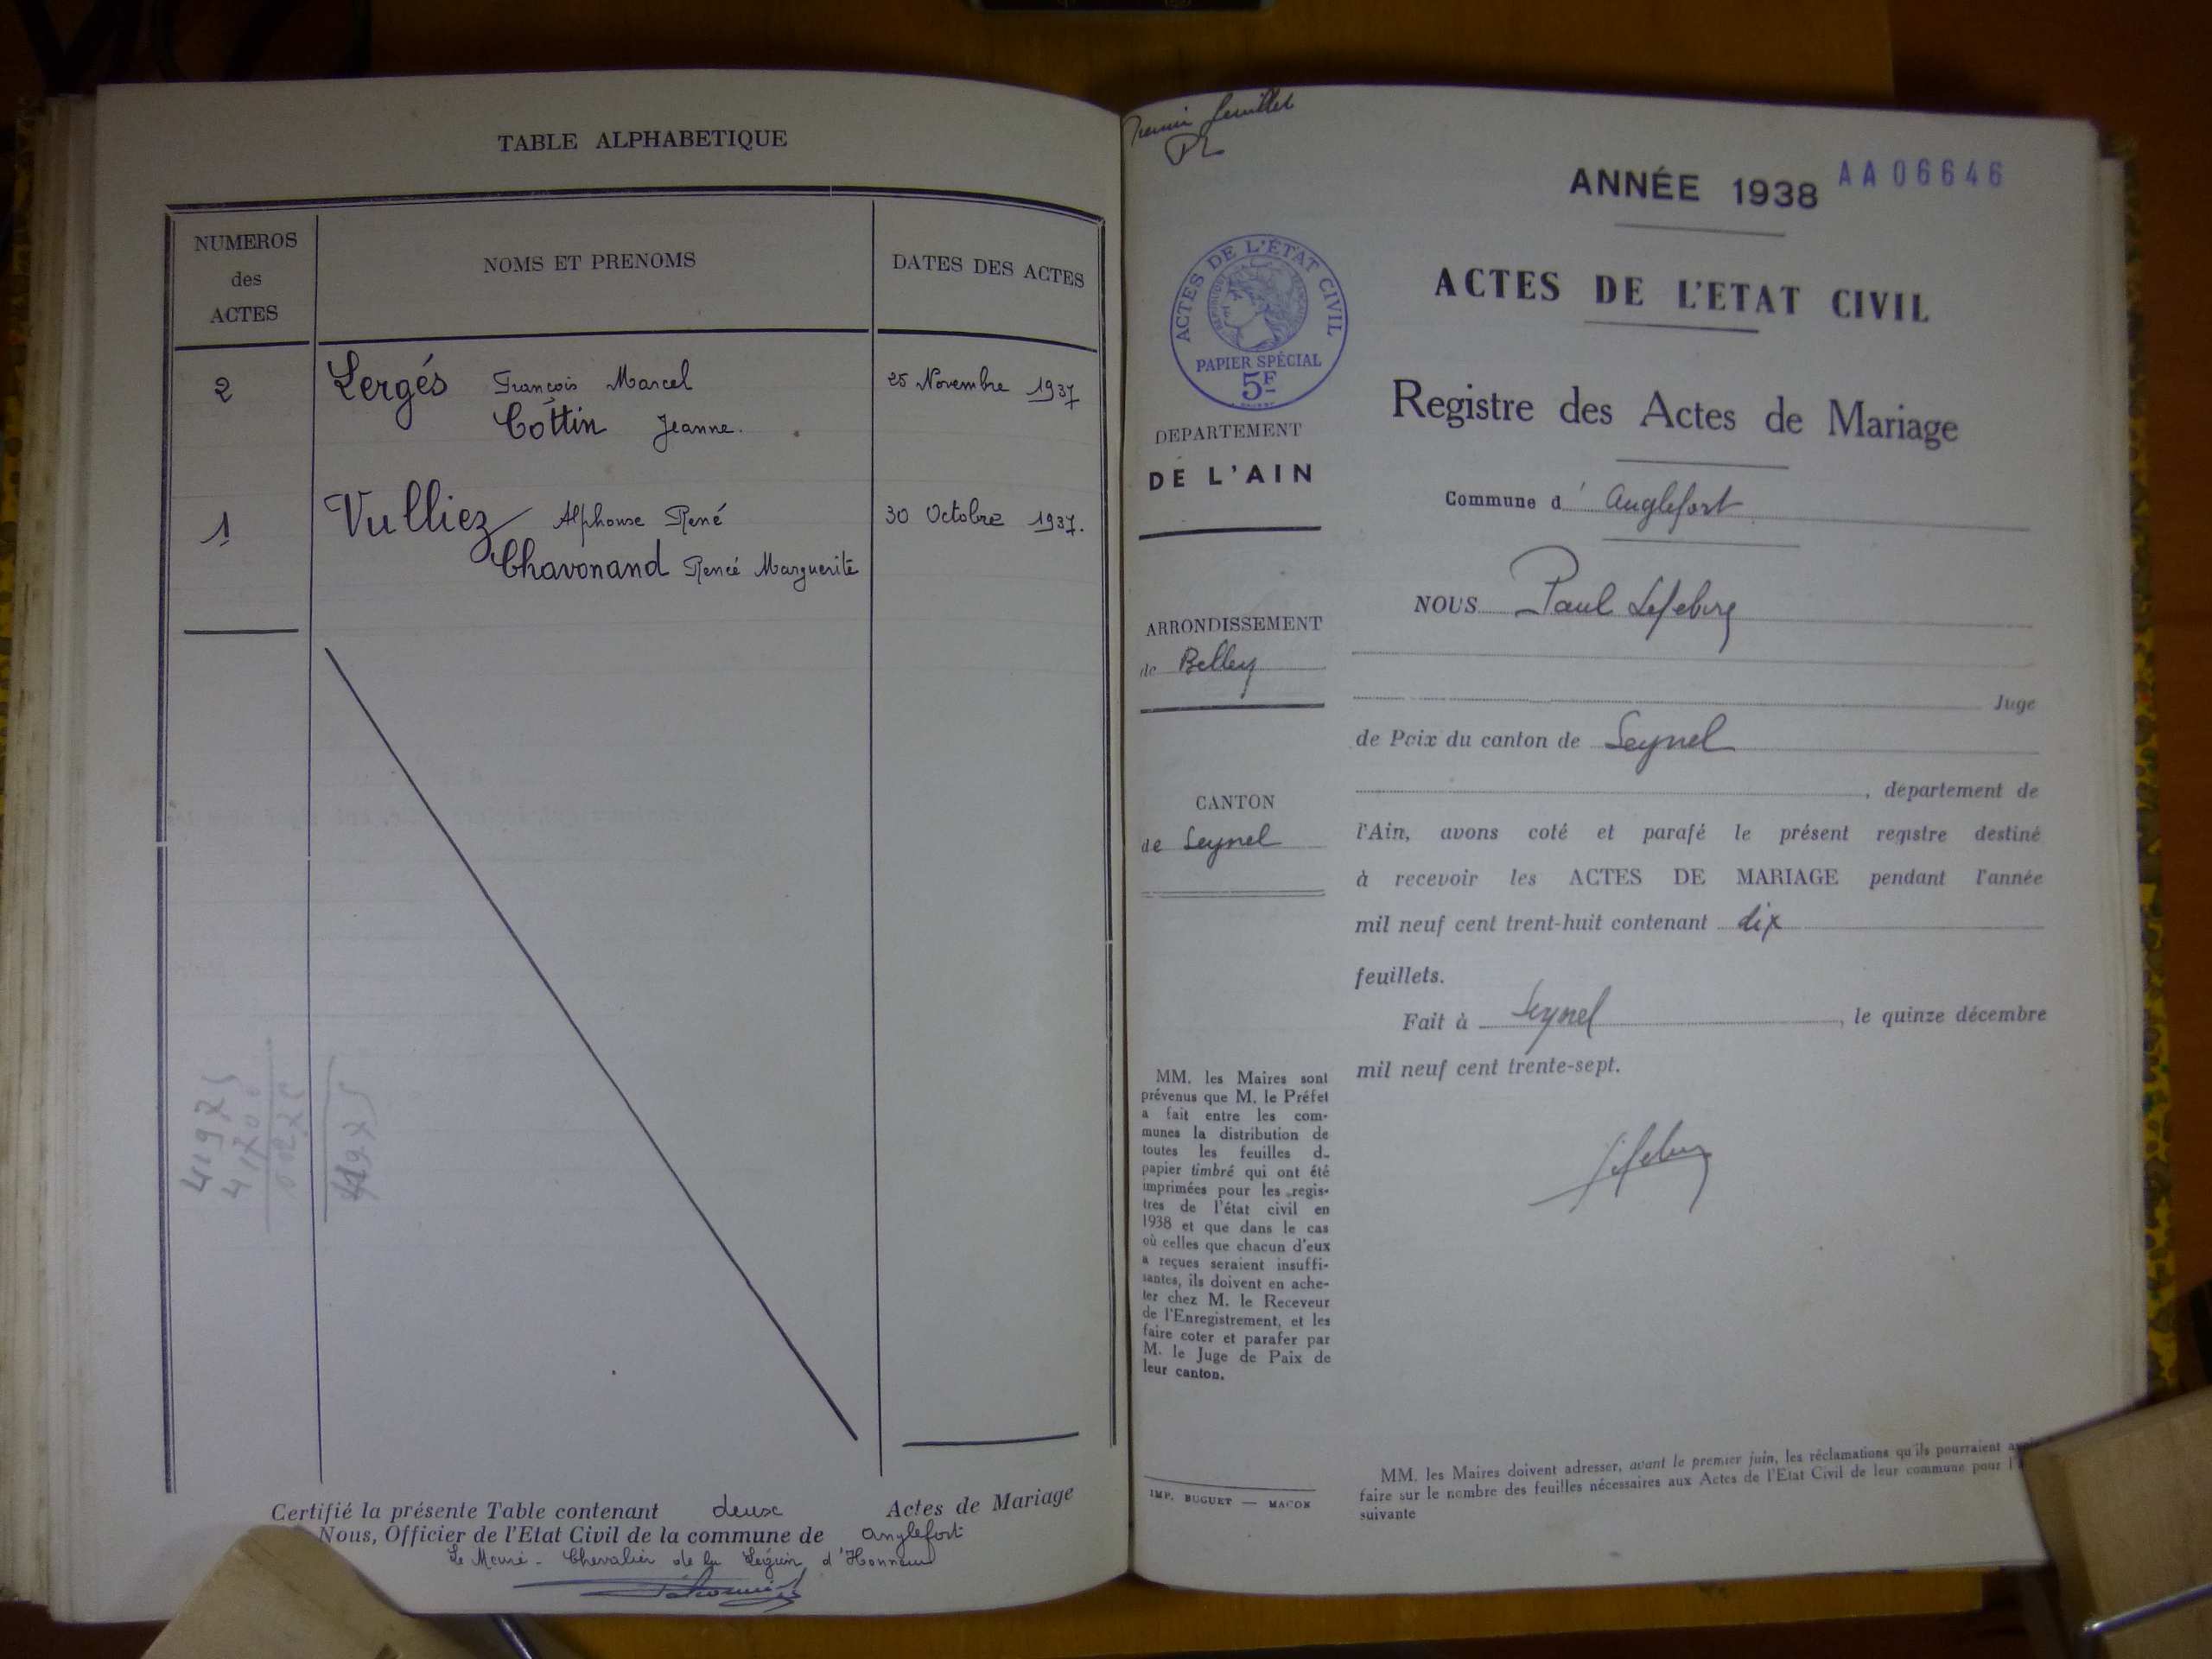 TABLE ALPHABETIQUE
NUMEROS
des
ACTES
NOMS ET PRENOMS
DATES DES ACTES
2
Lergés François Marcel
25 Novembre 1937
Cottin Jeanne.
1
Vulliez Alphonse René
30 Octobre 1937.
Chavonand Renée Marguerite
Certifié la présente Table contenant deux Actes de Mariage
Nous, Officier de l'Etat Civil de la commune de Anglefort
Le Maire - Chevalier de la Légion d'Honneur
feuillet
PL
ANNÉE 1938
AA06646
ACTES DE L'ETAT CIVIL
Registre des Actes de Mariage
Commune d' Anglefort
ACTES DE L'ÉTAT CIVIL
PAPIER SPÉCIAL
5F
DEPARTEMENT
DE L'AIN
ARRONDISSEMENT
de Belley
CANTON
de Seyssel
NOUS Paul Lefebvre
Juge
de Paix du canton de Seyssel
, département de
l'Ain, avons coté et parafé le présent registre destiné
à recevoir les ACTES DE MARIAGE pendant l'année
mil neuf cent trent-huit contenant dix
feuillets.
Fait à Seyssel, le quinze décembre
mil neuf cent trente-sept.
Lefebvre
MM. les Maires sont
prévenus que M. le Préfet
a fait entre les com-
munes la distribution de
toutes les feuilles d-
papier timbré qui ont été
imprimées pour les regis-
tres de l'état civil en
1938 et que dans le cas
où celles que chacun d'eux
a reçues seraient insuffi-
santes, ils doivent en ache-
ter chez M. le Receveur
de l'Enregistrement, et les
faire coter et parafer par
M. le Juge de Paix de
leur canton.
IMP. BUGUET — MACON
MM. les Maires doivent adresser, avant le premier juin, les réclamations qu'ils pourraient
faire sur le nombre des feuilles nécessaires aux Actes de l'Etat Civil de leur commune pour
suivante